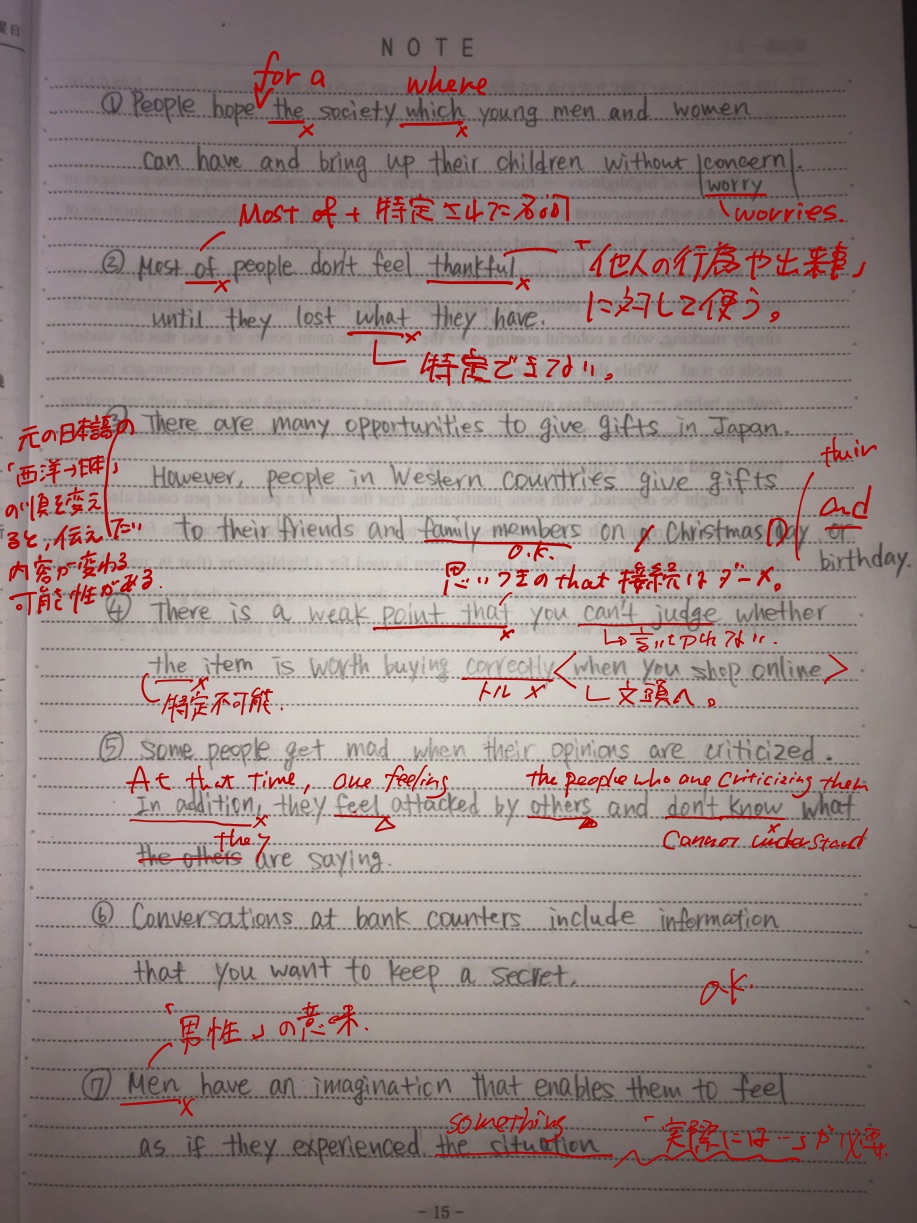 NOTE
for a where
① People hope the society which young men and women
can have and bring up their children without concern.
worry
worries.
Most of + 特定される名詞
② Most of people don't feel thankful
「他人の行為や出来事」
に対して使う。
until they lost what they have.
特定できない。
③ There are many opportunities to give gifts in Japan.
元の日本語の
「西洋→日本」
の順を変え
ると、伝えたい
内容が変わる
可能性がある.
However, people in Western countries give gifts
their
to their friends and family members on a Christmas Day or
and
O.K.
birthday.
思いつきのthat接続はダメ。
④ There is a weak point that you can't judge whether
言いきれない.
the item is worth buying correctly <when you shop online>
特定不可能.
トル
文頭へ。
⑤ Some people get mad when their opinions are criticized.
At that time, one feeling the people who are criticizing them
In addition, they feel attacked by others and don't know what
they
cannot understand
the others are saying.
⑥ Conversations at bank counters include information
that you want to keep a secret.
o.k.
「男性」の意味.
⑦ Men have an imagination that enables them to feel
something
as if they experienced the situation
「実際には…」が必要.
- 15 -